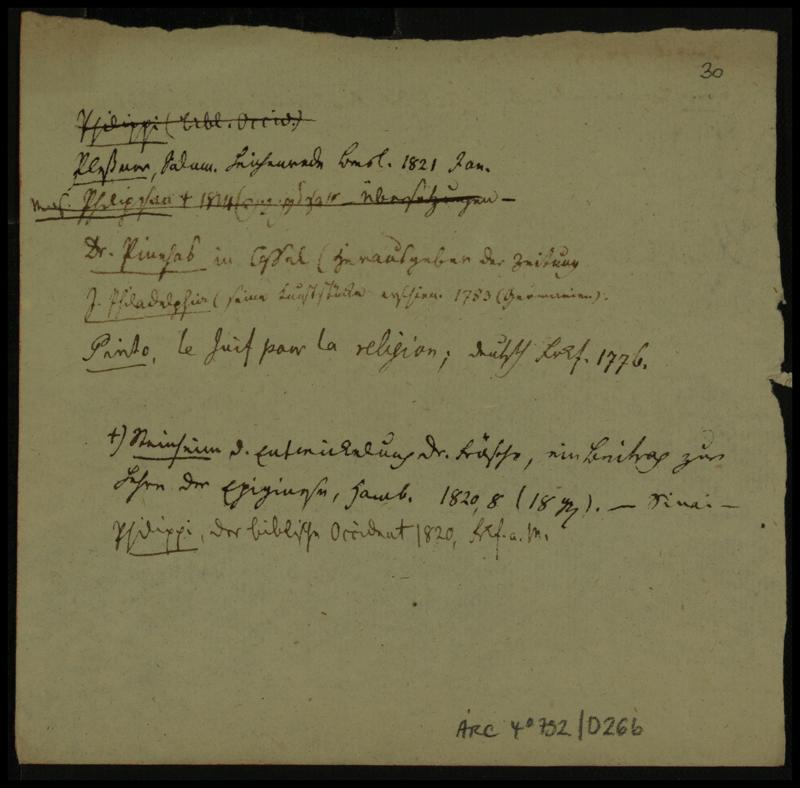 30
Philippi (bibl. Occid.)
Pleßner, Salom. Leichenrede Bresl. 1821 Jan.
Philippson † 1814 Übersetzungen –
Dr. Pinehas in Cassel (Herausgeber der Zeitung
J. Philadelphia (seine Kunststücke erschien. 1783 (Germanien).
Pinto, le Juif pour la religion; deutsch Frkf. 1776.
†) Steinheim d. Entwickelung der Frösche, ein Beitrag zur
Lehre der Epigenese, Hamb. 1820, 8 – Sinai –
Philippi, der biblische Occident 1820, Frkf. a. M.
ARC 4° 792/D26b